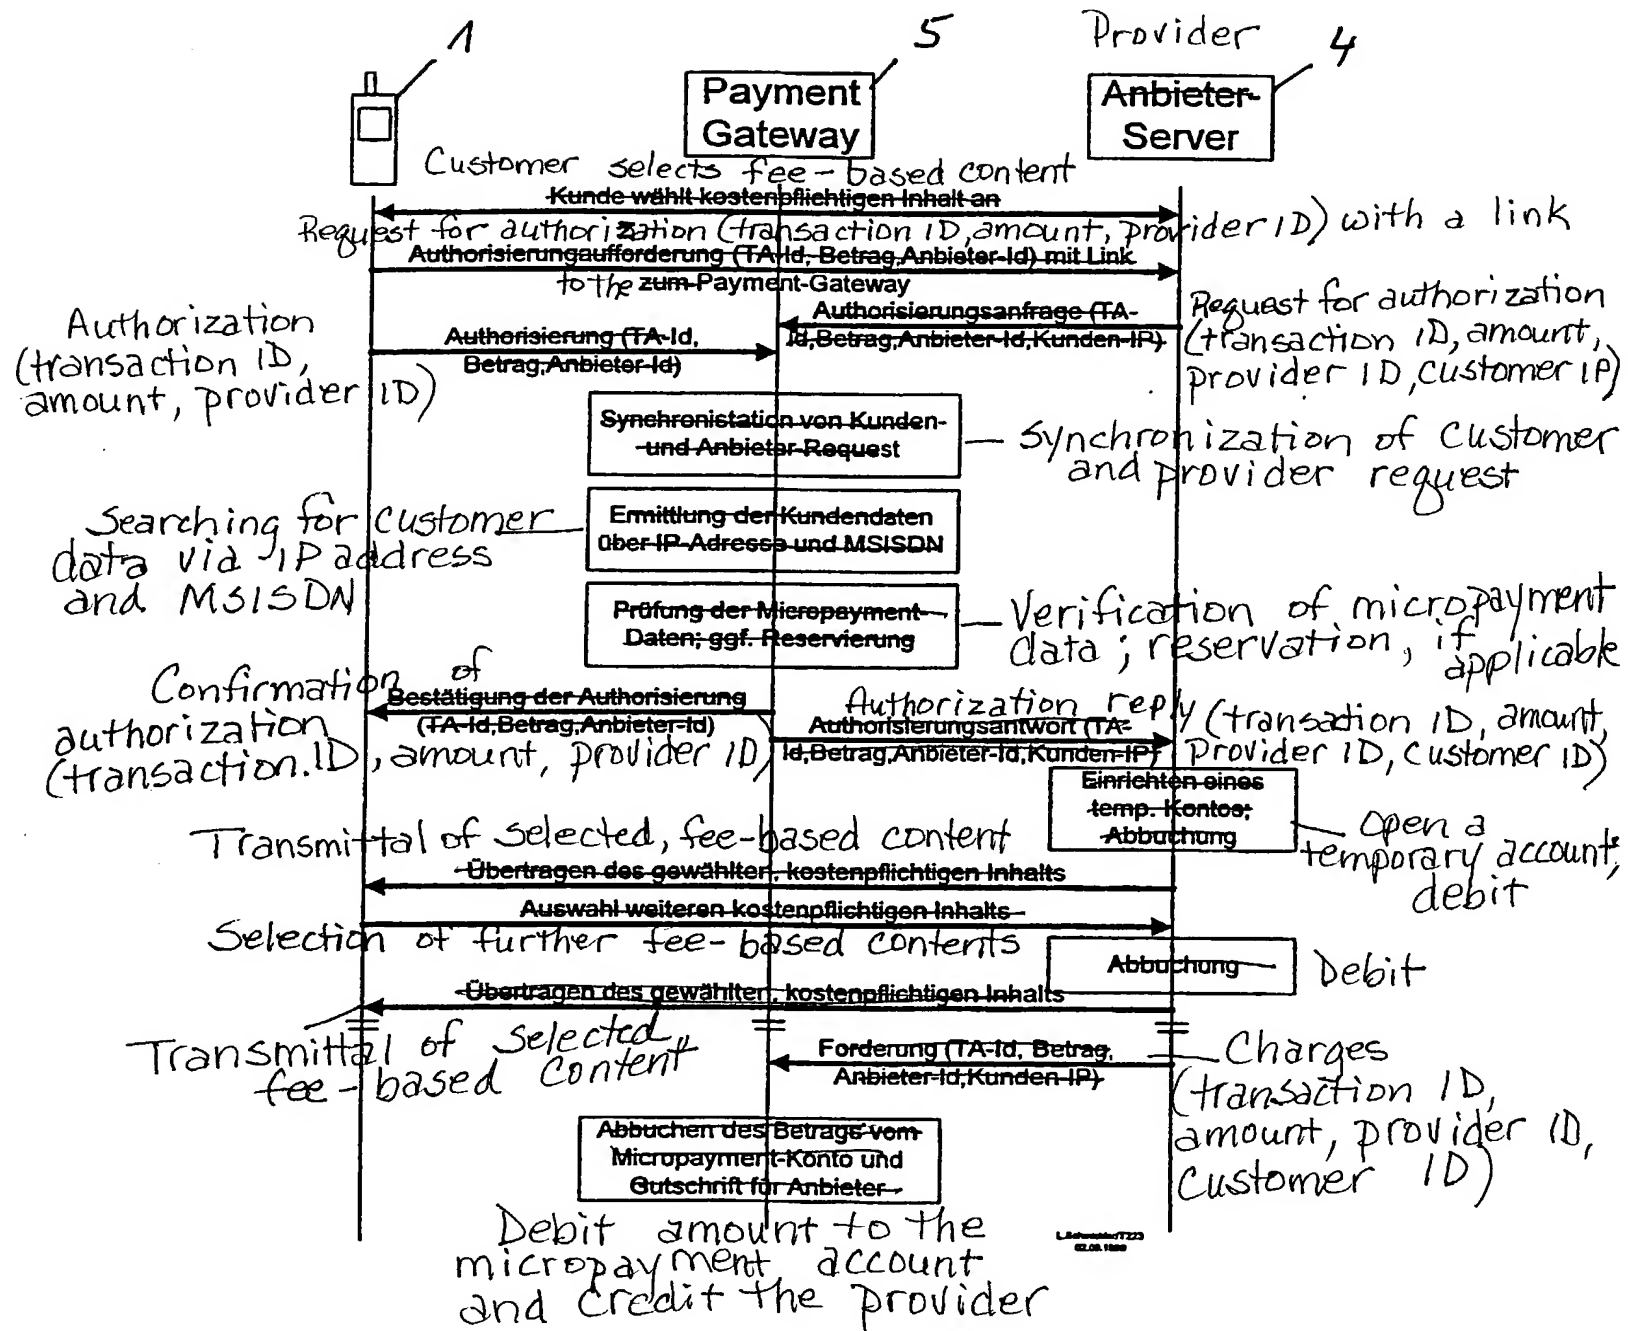 1
5
Provider
4
Payment
Gateway
Anbieter-
Server
Customer selects fee-based content
Kunde wählt kostenpflichtigen Inhalt an
Request for authorization (transaction ID, amount, provider ID) with a link
Authorisierungaufforderung (TA-Id, Betrag,Anbieter-Id) mit Link
to the zum Payment-Gateway
Authorization
(transaction ID,
amount, provider ID)
Authorisierung (TA-Id,
Betrag,Anbieter-Id)
Authorisierungsanfrage (TA-
Id,Betrag,Anbieter-Id,Kunden-IP)
Request for authorization
(transaction ID, amount,
provider ID, customer IP)
Synchronistation von Kunden-
und Anbieter-Request
Synchronization of customer
and provider request
Searching for customer
data via IP address
and MSISDN
Ermittlung der Kundendaten
über IP-Adresse und MSISDN
Prüfung der Micropayment-
Daten; ggf. Reservierung
Verification of micropayment
data; reservation, if
applicable
Confirmation of
authorization
(transaction.ID, amount, provider ID)
Bestätigung der Authorisierung
(TA-Id,Betrag,Anbieter-Id)
Authorization reply (transaction ID, amount,
Provider ID, customer ID)
Authorisierungsantwort (TA-
Id,Betrag,Anbieter-Id,Kunden-IP)
Einrichten eines
temp. Kontos;
Abbuchung
Open a
temporary account;
debit
Transmittal of selected, fee-based content
Übertragen des gewählten, kostenpflichtigen Inhalts
Auswahl weiteren kostenpflichtigen Inhalts
Selection of further fee-based contents
Abbuchung
Debit
Übertragen des gewählten, kostenpflichtigen Inhalts
Transmittal of selected,
fee-based content
Forderung (TA-Id, Betrag,
Anbieter-Id,Kunden-IP)
Charges
(transaction ID,
amount, provider ID,
customer ID)
Abbuchen des Betrags vom
Micropayment-Konto und
Gutschrift für Anbieter
Debit amount to the
micropayment account
and credit the provider